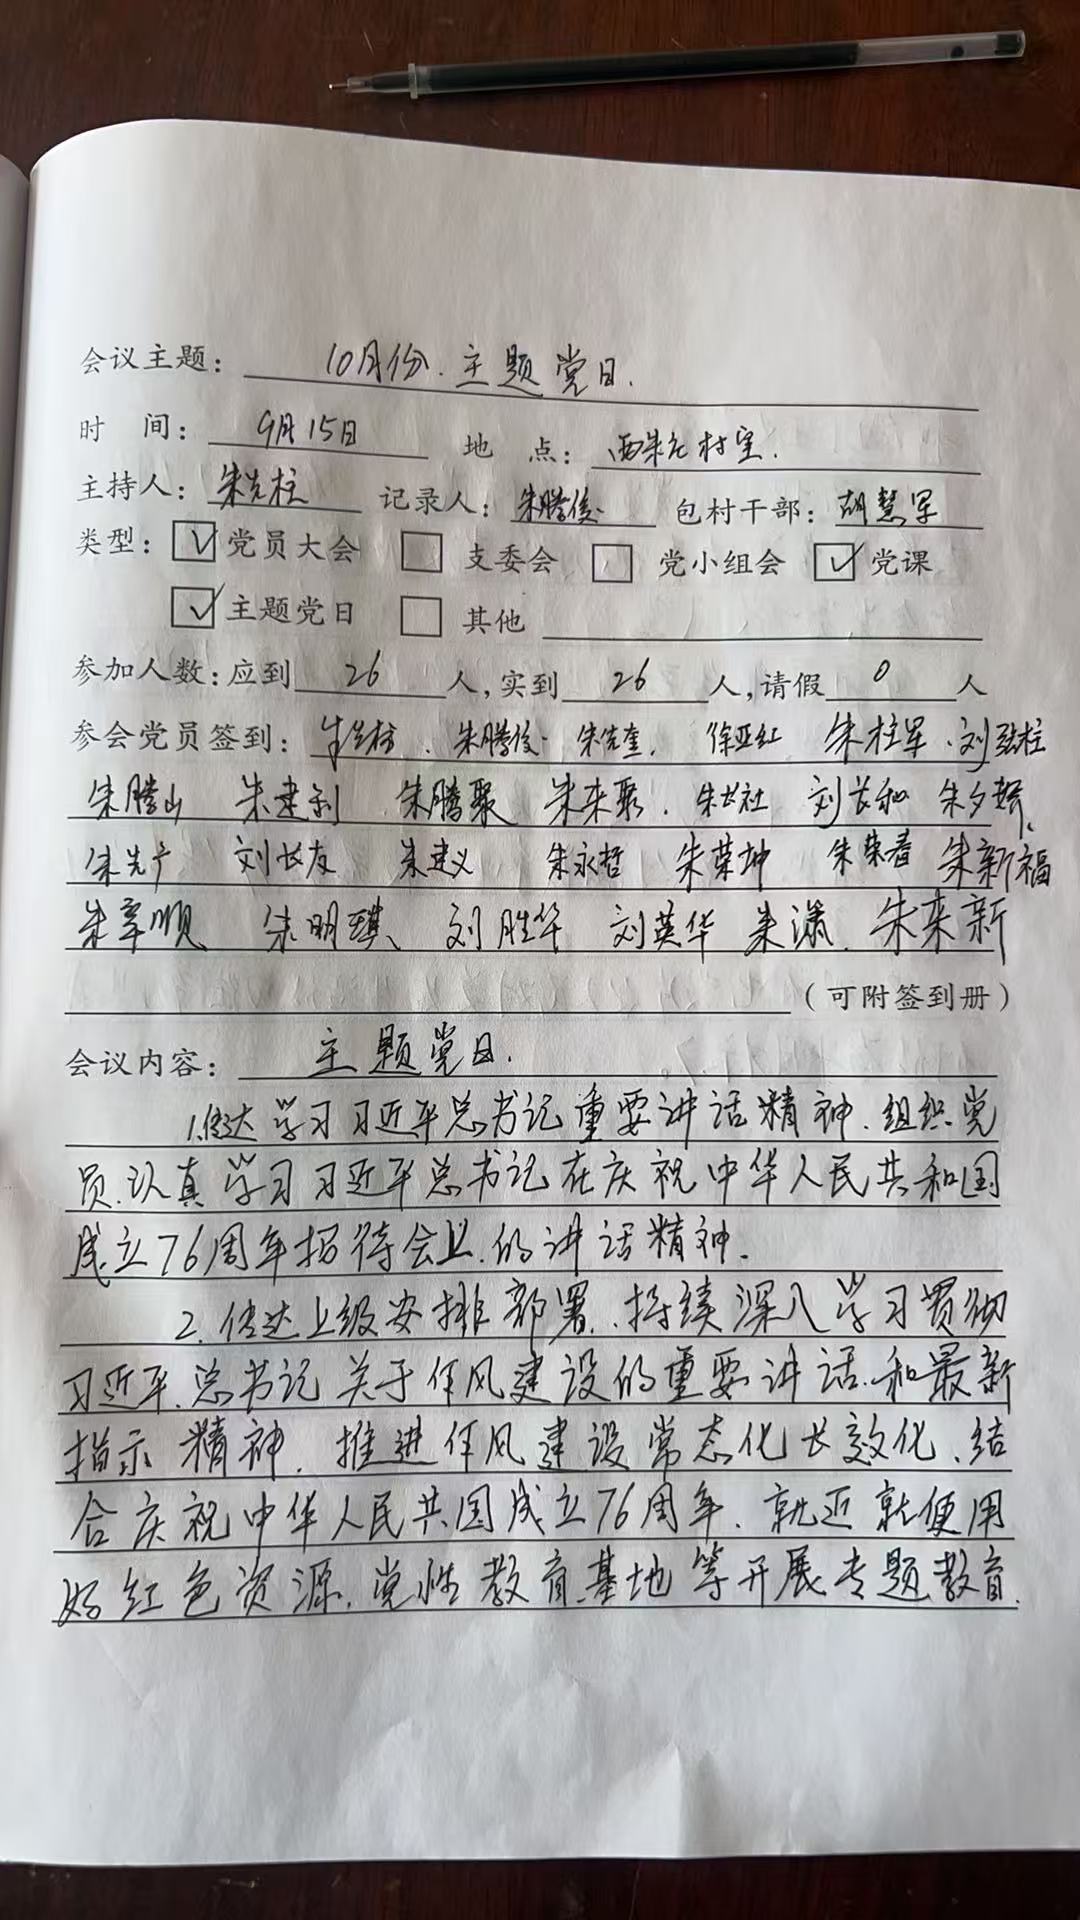 会议主题: 10月份.主题党日.
时 间: 9月15日 地 点: 西朱孔村室.
主持人: 朱先柱 记录人: 朱腾俊 包村干部: 胡慧军
类型: ☑党员大会 □ 支委会 □ 党小组会 ☑党课
☑主题党日 □ 其他
参加人数:应到 26 人,实到 26 人,请假 0 人
参会党员签到: 朱先柱. 朱腾俊. 朱先奎. 徐亚红 朱柱军. 刘强柱
朱腾山 朱建利 朱腾聚 朱来聚. 朱长社 刘长和 朱夕娇
朱先广 刘长友 朱建义 朱永哲 朱荣坤 朱荣春 朱新福
朱章顺 朱明琪 刘胜华 刘英华 朱潇. 朱来新
(可附签到册)
会议内容: 主题党日.
1.传达学习习近平总书记重要讲话精神.组织党
员.认真学习习近平总书记在庆祝中华人民共和国
成立76周年招待会上.的讲话精神.
2.传达上级安排部署.持续深入学习贯彻
习近平.总书记关于作风建设的重要讲话.和最新
指示精神.推进作风建设常态化长效化.结
合庆祝中华人民共国成立76周年.就近就便用
好红色资源.党性教育基地等开展专题教育.